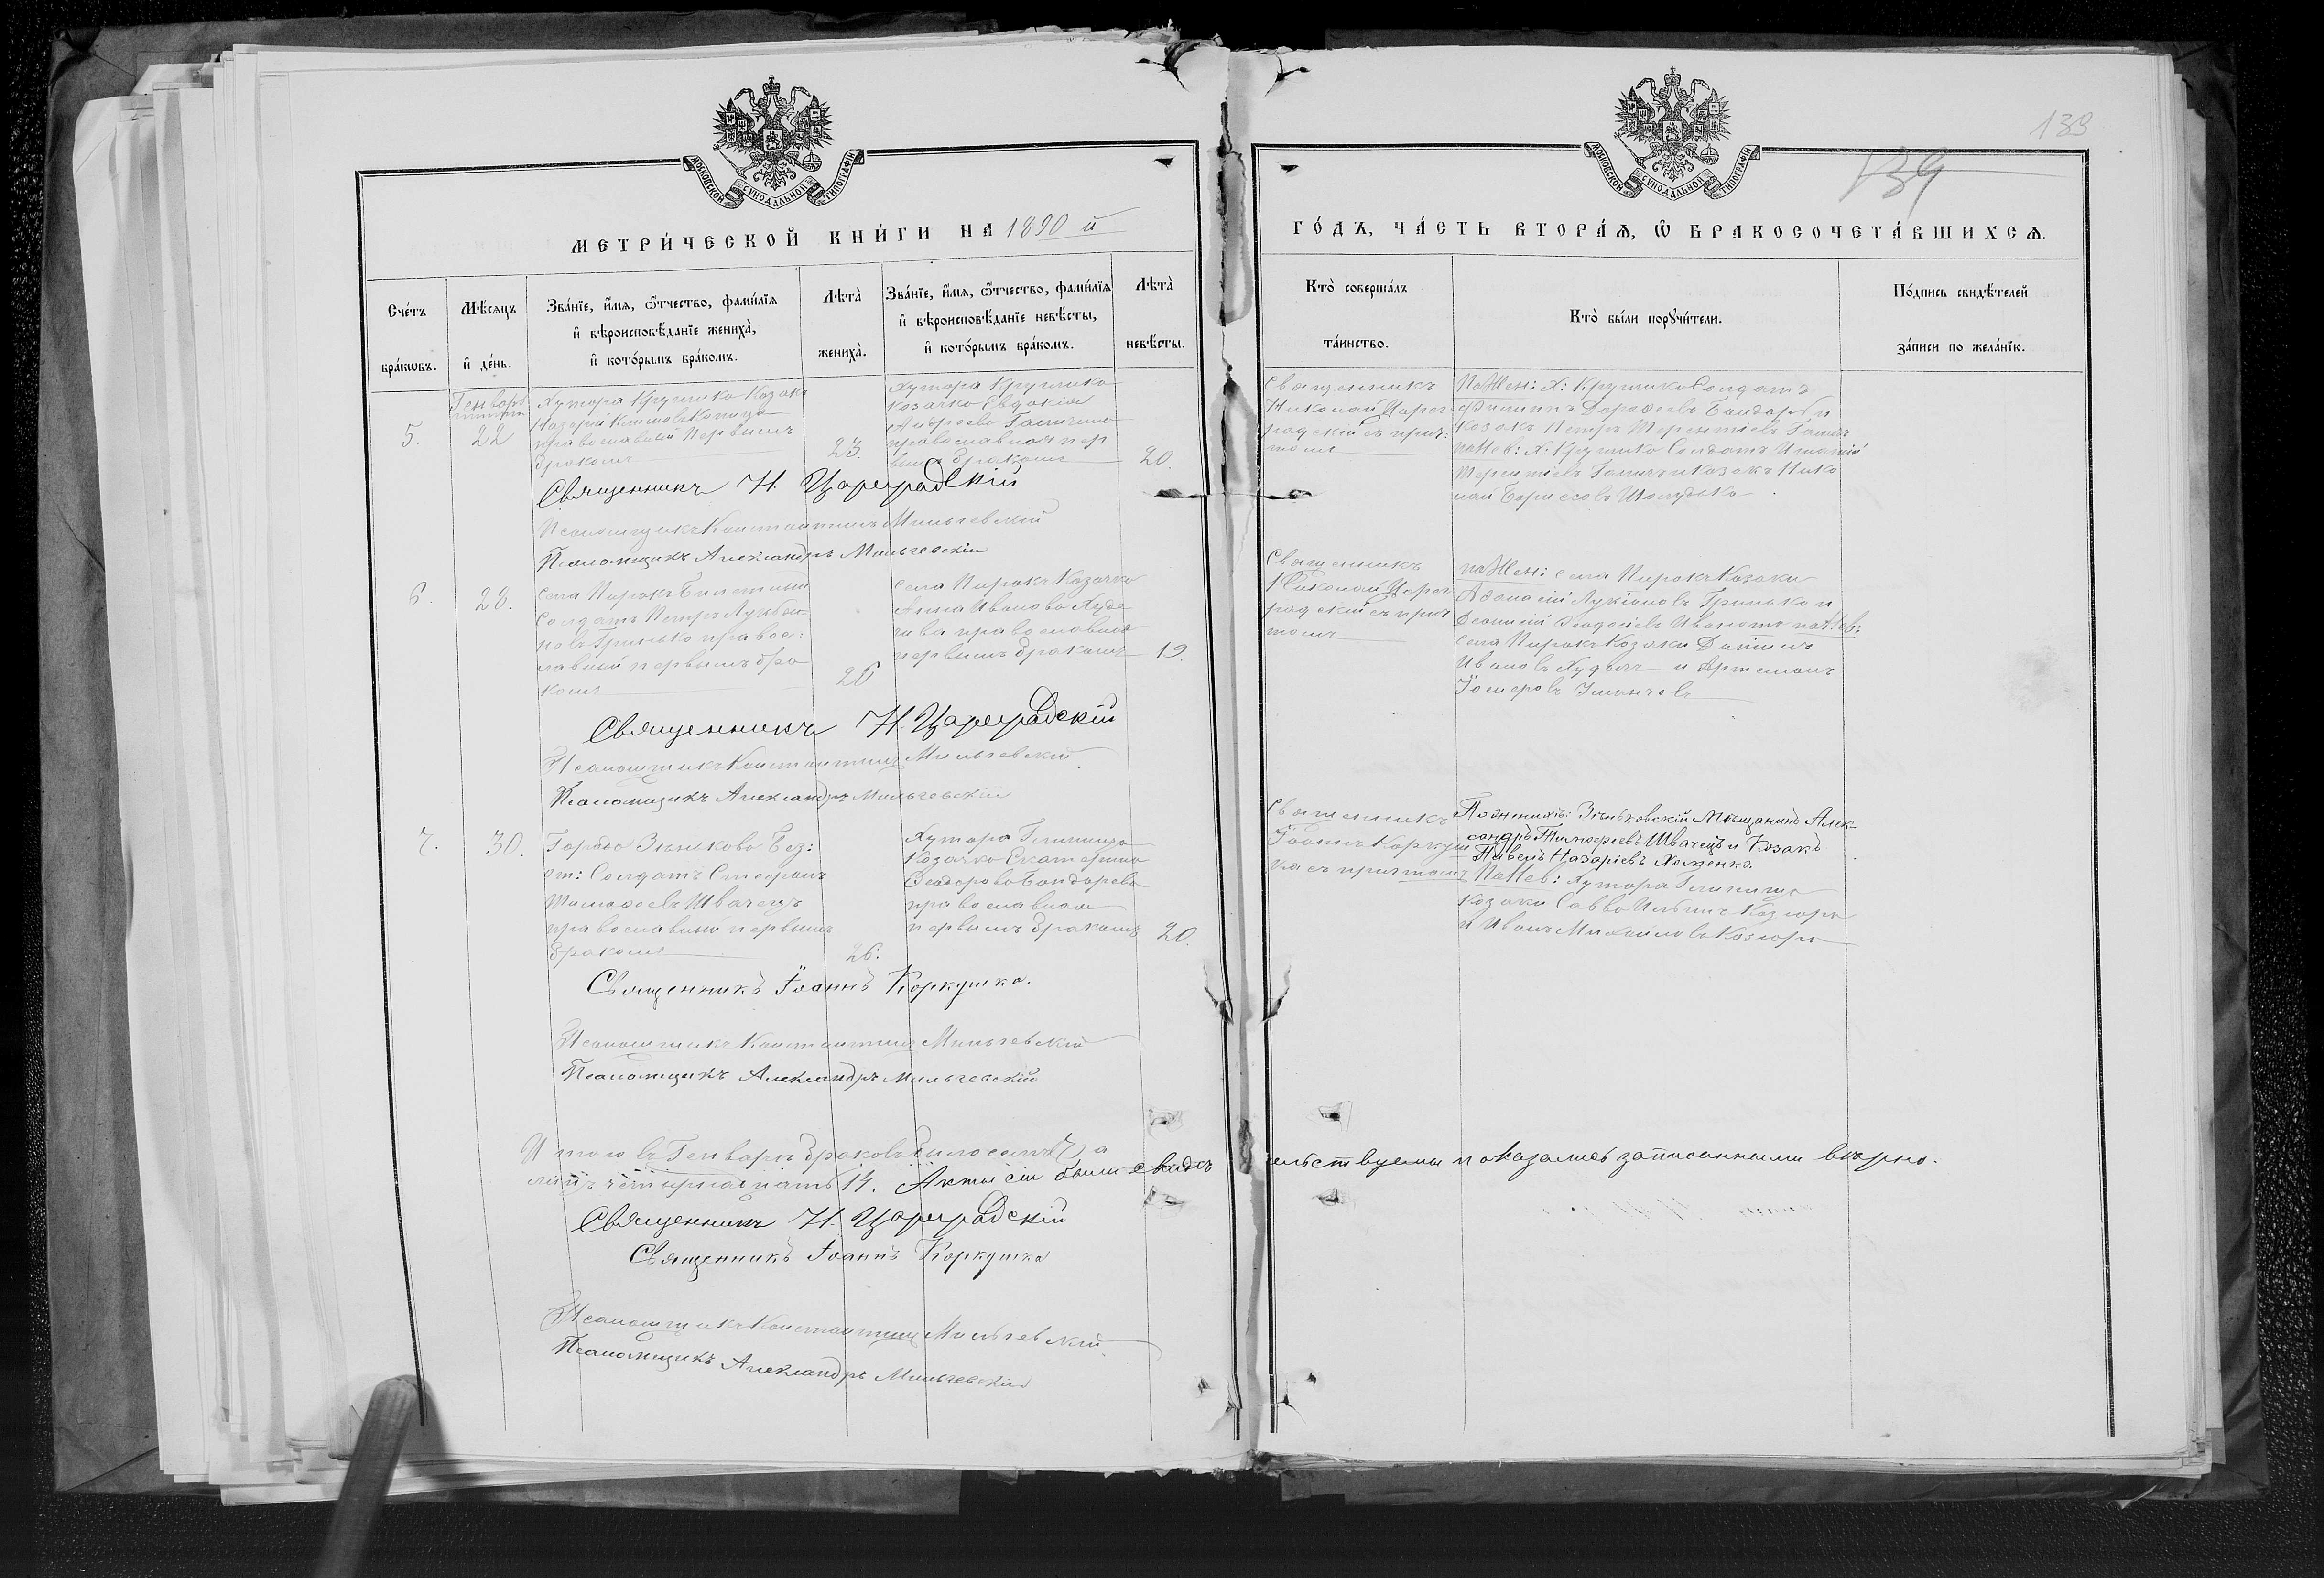 МОСКОВСКОЙ СУНОДАЛЬНОЙ ТИПОГРАФІИ
МЕТРИ́ЧЕСКОЙ КНИ́ГИ НА 1890 й
Сче́тъ бра́кѡвъ.
Мѣ́сяцъ и҆ де́нь.
Зва́нїе, и҆́мѧ, ѻ҆́тчество, фами́лїѧ и҆ вѣроисповѣ́данїе жениха̀, и҆ кото́рымъ бра́комъ.
Лѣта̀ жениха̀.
Зва́нїе, и҆́мѧ, ѻ҆́тчество, фами́лїѧ и҆ вѣроисповѣ́данїе невѣ́сты, и҆ кото́рымъ бра́комъ.
Лѣта̀ невѣ́сты.
5.
Генварь
22
Хутора Круглика Козакъ
Назарій
православный первымъ
бракомъ
23.
Хутора Круглика
козачка Евдокія
Андреева
православная пер
вымъ бракомъ
20.
Священникъ Н. Цареградскій
Псаломщикъ Константинъ Мильчевскій
Псаломщикъ Александръ Мильчевскій
6.
28.
Села Пирокъ
Солдатъ Петръ
Гринько правос:
лавный первымъ бра
комъ
26
Села Пирокъ Козачка
Анна Иванова
православная
первымъ бракомъ
19.
Священникъ Н. Цареградскій
Псаломщикъ Константинъ Мильчевскій
Псаломщикъ Александръ Мильчевскій
7.
30.
Города Зѣнькова Без:
от: Солдатъ Стефанъ
Тимофеевъ Швачецъ
православный первымъ
бракомъ
26.
Хутора
Козачка Екатерина
Феодорова Бондарева
православная
первымъ бракомъ
20.
Священникъ Іоаннъ Коркушка.
Псаломщикъ Константинъ Мильчевскій
Псаломщикъ Александръ Мильчевскій
Итого въ Генварѣ браковъ было семь (7) а
лицъ четырнадцать 14. Акты сіи были свидѣ
Священникъ Н. Цареградскій
Священникъ Іоаннъ Коркушка
Псаломщикъ Константинъ Мильчевскій
Псаломщикъ Александръ Мильчевскій
139
139
МОСКОВСКОЙ СУНОДАЛЬНОЙ ТИПОГРАФІИ
ГО́ДЪ, ЧА́СТЬ ВТОРА́Ѧ, Ѽ БРАКОСОЧЕТА́ВШИХСѦ.
Кто̀ соверша́лъ та́инство.
Кто̀ бы́ли порꙋчи́тели.
По́дпись свидѣ́телей за́писи по жела́нїю.
Священникъ
Николай Царег
радскій съ прич:
томъ
по Жен: Х: Круглика Солдатъ
Филиппъ Дорофеевъ Бондарь и
козакъ Петръ Терентіевъ
по Нев: Х: Круглика Солдатъ
Терентіевъ и Козакъ Нико
лай Борисовъ Шолудько
Священникъ
Николай Царег
радскій съ прич
томъ
по Жен: села Пирокъ Козаки
Афанасій Лукіановъ Гринько и
Феодосіевъ по Нев:
села Пирокъ Козаки Даніилъ
Ивановъ и Артемонъ
Священникъ
Іоаннъ Коркуш
ка съ причтомъ
По женихѣ: Зѣньковскій Мѣщанинъ Алек-
сандръ Тимофеевъ Швачецъ и Козакъ
Павелъ Назаріевъ Хоменко.
По Нев: Хутора
козаки Савва Ильинъ Козюра
и Иванъ Михайловъ Козюра
ельствуемы и оказались записанными вѣрно.